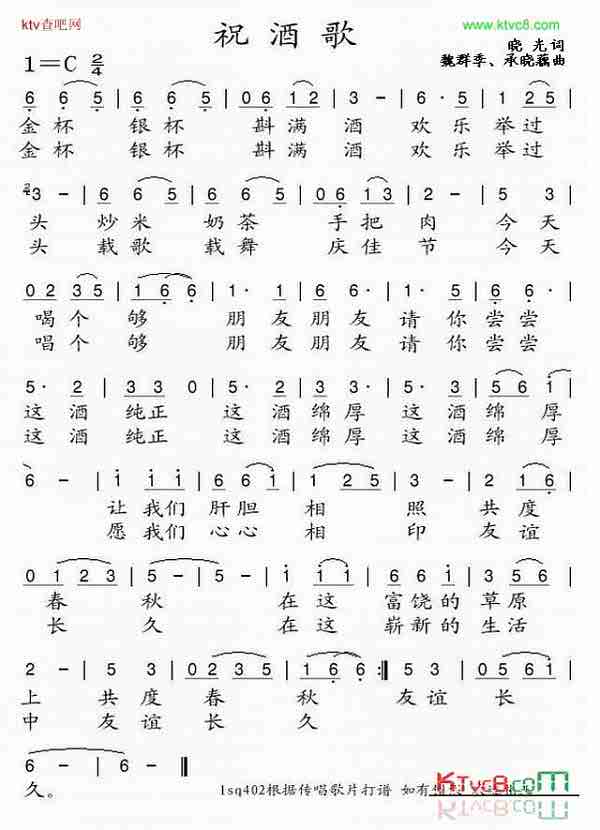 ktv查吧网
www.ktvc8.com
祝酒歌
1=C 2/4
晓光词
魏群季、承晓藕曲
6 6 5 | 6 6 5 | 0 6 1 2 | 3 - | 6 6 5 | 6 6 5 |
金杯 银杯 斟满酒 欢乐举过
金杯 银杯 斟满酒 欢乐举过
3 - | 6 6 5 | 6 6 5 | 0 6 1 3 | 2 - | 5 3 |
头 炒米 奶茶 手把肉 今天
头 载歌 载舞 庆佳节 今天
0 2 3 5 | 1 6 6 | 1· 1 | 6 6· | 1· 1 | 6 6· |
喝个够 朋友朋友请你尝尝
唱个够 朋友朋友请你尝尝
5· 2 | 3 3 0 | 5 2· | 3 3· | 5 2· | 3 5 6 1 |
这酒纯正 这酒绵厚 这酒绵厚
这酒纯正 这酒绵厚 这酒绵厚
6 - | 1 1 1 | 6 6 1 | 1 2 5 | 3 - | 1 2 |
让我们肝胆相照共度
愿我们心心相印友谊
0 1 2 3 | 5 - | 5 - | 1 1 1 | 6 6 1 | 3 5 6 |
春秋 在这富饶的草原
长久 在这崭新的生活
2 - | 5 3 | 0 2 3 5 | 1 6 6 :| 5 3 | 0 5 6 1 |
上 共度春秋 友谊长
中 友谊长久
6 - | 6 - ‖
久。
1sq402根据传唱歌片打谱 如有
KTvc8.com